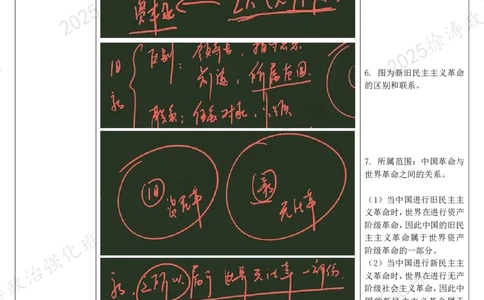 旧
新
区别：领导者、指导思想
前途、所属范围
联系：任务对象、性质
6. 图为新旧民主主义革命
的区别和联系。
旧
新
7. 所属范围：中国革命与
世界革命之间的关系。
（1）当中国进行旧民主主
义革命时，世界在进行资产
阶级革命，因此中国的旧民
主主义革命属于世界资产
阶级革命的一部分。
（2）当中国进行新民主主
义革命时，世界在进行无产
阶级社会主义革命，因此中
新，之所以属于世界无比革一部份
2025徐涛政
政治强化班
2025